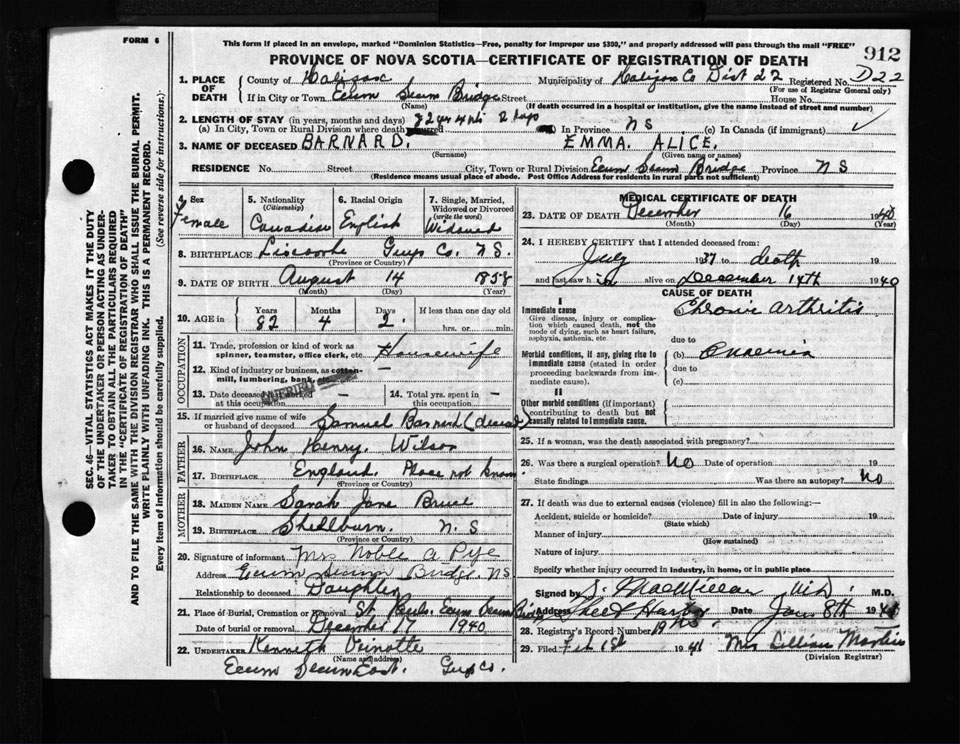 FORM 6
This form if placed in an envelope, marked "Dominion Statistics—Free, penalty for improper use $300," and properly addressed will pass through the mail "FREE"
PROVINCE OF NOVA SCOTIA—CERTIFICATE OF REGISTRATION OF DEATH
912
D22
SEC. 46—VITAL STATISTICS ACT MAKES IT THE DUTY
OF THE UNDERTAKER OR PERSON ACTING AS UNDER-
TAKER TO OBTAIN ALL THE PARTICULARS REQUIRED
IN THE "CERTIFICATE OF REGISTRATION OF DEATH"
AND TO FILE THE SAME WITH THE DIVISION REGISTRAR WHO SHALL ISSUE THE BURIAL PERMIT.
WRITE PLAINLY WITH UNFADING INK. THIS IS A PERMANENT RECORD.
Every item of information should be carefully supplied. (See reverse side for instructions.)
1. PLACE OF DEATH
County of Halifax Municipality of Halifax Co Dist 22 Registered No.
(For use of Registrar General only)
If in City or Town Ecum Secum Bridge Street House No.
(Name) (If death occurred in a hospital or institution, give the name instead of street and number)
2. LENGTH OF STAY (in years, months and days)
(a) In City, Town or Rural Division where death occurred 82 yrs 4 mts 2 days (b) In Province N S (c) In Canada (if immigrant)
3. NAME OF DECEASED BARNARD. EMMA. ALICE.
(Surname) (Given name or names)
RESIDENCE No. Street City, Town or Rural Division Ecum Secum Bridge Province N S
(Residence means usual place of abode. Post Office Address for residents in rural parts not sufficient)
4. Sex Female
5. Nationality (Citizenship) Canadian
6. Racial Origin English
7. Single, Married, Widowed or Divorced (write the word) Widowed
8. BIRTHPLACE Liscombe Guys Co. N.S.
(Province or Country)
9. DATE OF BIRTH August 14 1858
(Month) (Day) (Year)
10. AGE IN Years 82 Months 4 Days 2. If less than one day old hrs. or min.
OCCUPATION
11. Trade, profession or kind of work as spinner, teamster, office clerk, etc. Housewife
12. Kind of industry or business, as cotton-mill, lumbering, bank, etc. —
13. Date deceased last worked at this occupation —
14. Total yrs. spent in this occupation —
VERIFIED
15. If married give name of wife or husband of deceased Samuel Barnard (deceased)
FATHER
16. Name John Henry. Wilson
17. Birthplace England. Place not known
(Province or Country)
MOTHER
18. Maiden Name Sarah Jane Bruce
19. Birthplace Shelburn. N. S
(Province or Country)
20. Signature of informant Mrs Noble A Pye
Address Ecum Secum Bridge. N.S
Relationship to deceased Daughter
21. Place of Burial, Cremation or Removal St Pauls. Ecum Secum Bridge
Date of burial or removal December 17 1940.
22. UNDERTAKER Kenneth Veinotte
(Name and address)
Ecum Secum East. Guys Co.
MEDICAL CERTIFICATE OF DEATH
23. DATE OF DEATH December 16 1940
(Month) (Day) (Year)
24. I HEREBY CERTIFY that I attended deceased from:
July 1937 to death
and last saw h alive on December 14th 1940
CAUSE OF DEATH
I
Immediate cause
Give disease, injury or complication which caused death, not the mode of dying, such as heart failure, asphyxia, asthenia, etc
Chronic Arthritis
due to
Morbid conditions, if any, giving rise to immediate cause (stated in order proceeding backwards from immediate cause).
(b) Anaemia
due to
(c)
II
Other morbid conditions (if important) contributing to death but not causally related to immediate cause.
25. If a woman, was the death associated with pregnancy?
26. Was there a surgical operation? No Date of operation 19
State findings Was there an autopsy? No
27. If death was due to external causes (violence) fill in also the following:—
Accident, suicide or homicide? Date of injury 19
(State which)
Manner of injury
(How sustained)
Nature of injury
Specify whether injury occurred in industry, in home, or in public place
Signed by MacMillan M.D. M.D.
Address Sheet Harbor Date Jan 8th 1941
28. Registrar's Record Number
29. Filed Feb 1st 1941 Mrs Lillian
(Division Registrar)